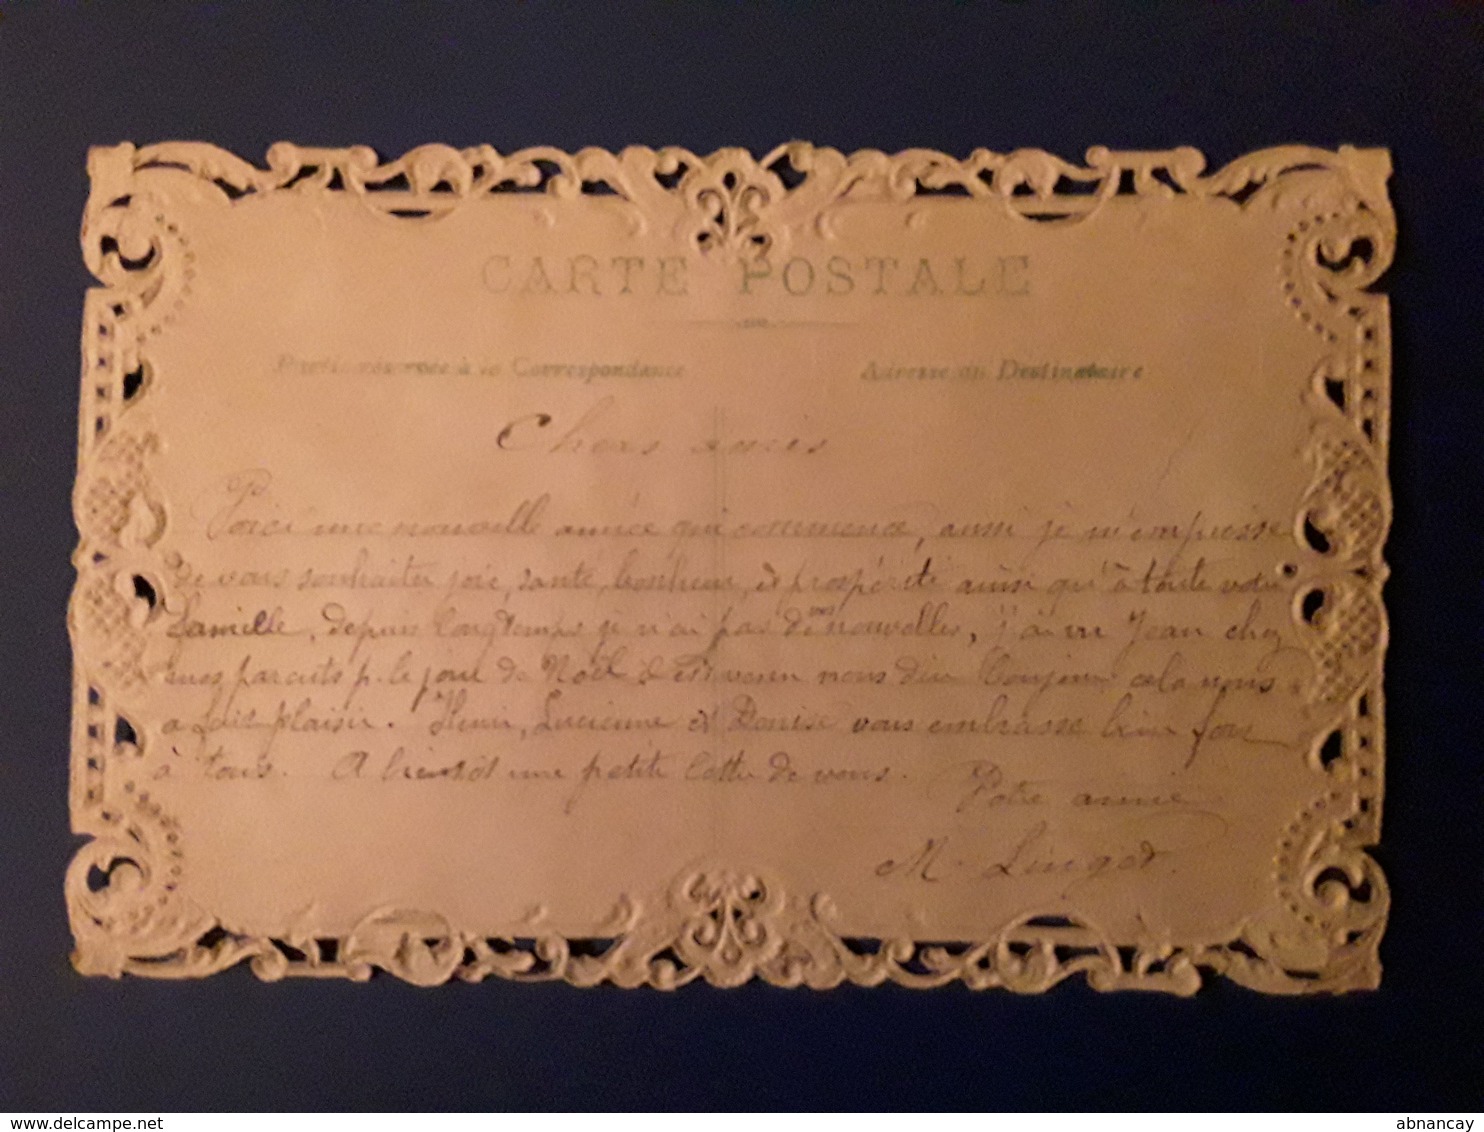 CARTE POSTALE
Partie réservée à la Correspondance Adresse du Destinataire
Chers amis
Voici une nouvelle année qui commence, aussi je m'empresse
de vous souhaiter joie, santé, bonheur, et prospérité ainsi qu'à toute votre
famille, depuis longtemps je n'ai pas de vos nouvelles, j'ai vu Jean chez
mes parents p. le jour de Noël & est venu nous dire bonjour cela nous
a fait plaisir. Henri, Lucienne et Denise vous embrasse bien fort
à tous. A bientôt une petite lettre de vous.
Votre amie
M. Linget.
abnancay